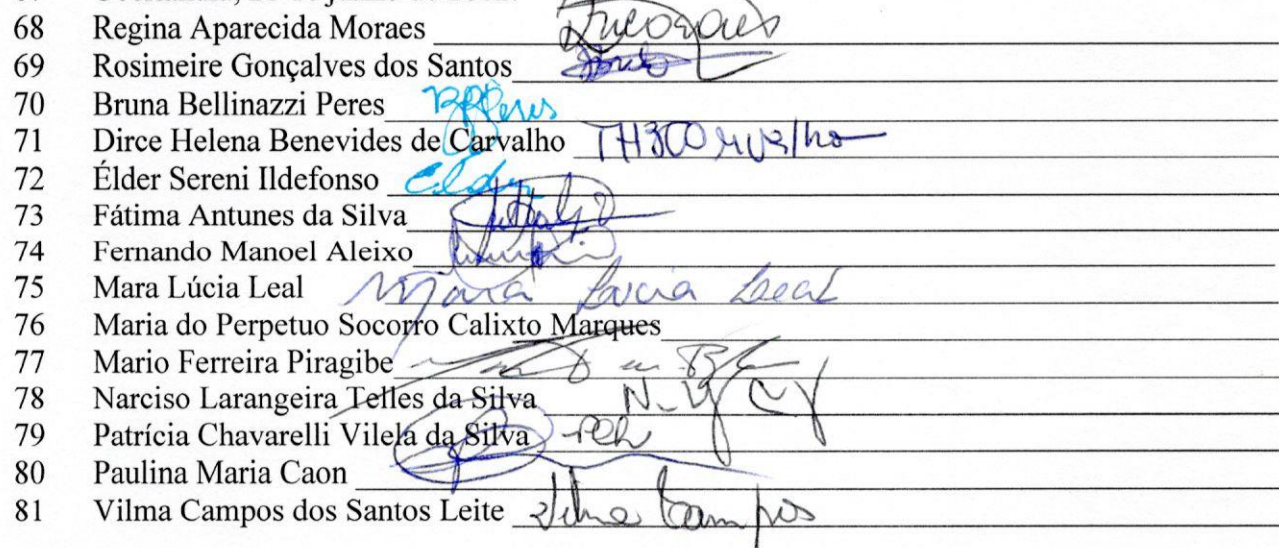 68 Regina Aparecida Moraes
69 Rosimeire Gonçalves dos Santos
70 Bruna Bellinazzi Peres BPPeres
71 Dirce Helena Benevides de Carvalho
72 Élder Sereni Ildefonso Elder
73 Fátima Antunes da Silva
74 Fernando Manoel Aleixo
75 Mara Lúcia Leal Mara Lucia Leal
76 Maria do Perpetuo Socorro Calixto Marques
77 Mario Ferreira Piragibe
78 Narciso Larangeira Telles da Silva
79 Patrícia Chavarelli Vilela da Silva
80 Paulina Maria Caon
81 Vilma Campos dos Santos Leite Vilma Campos